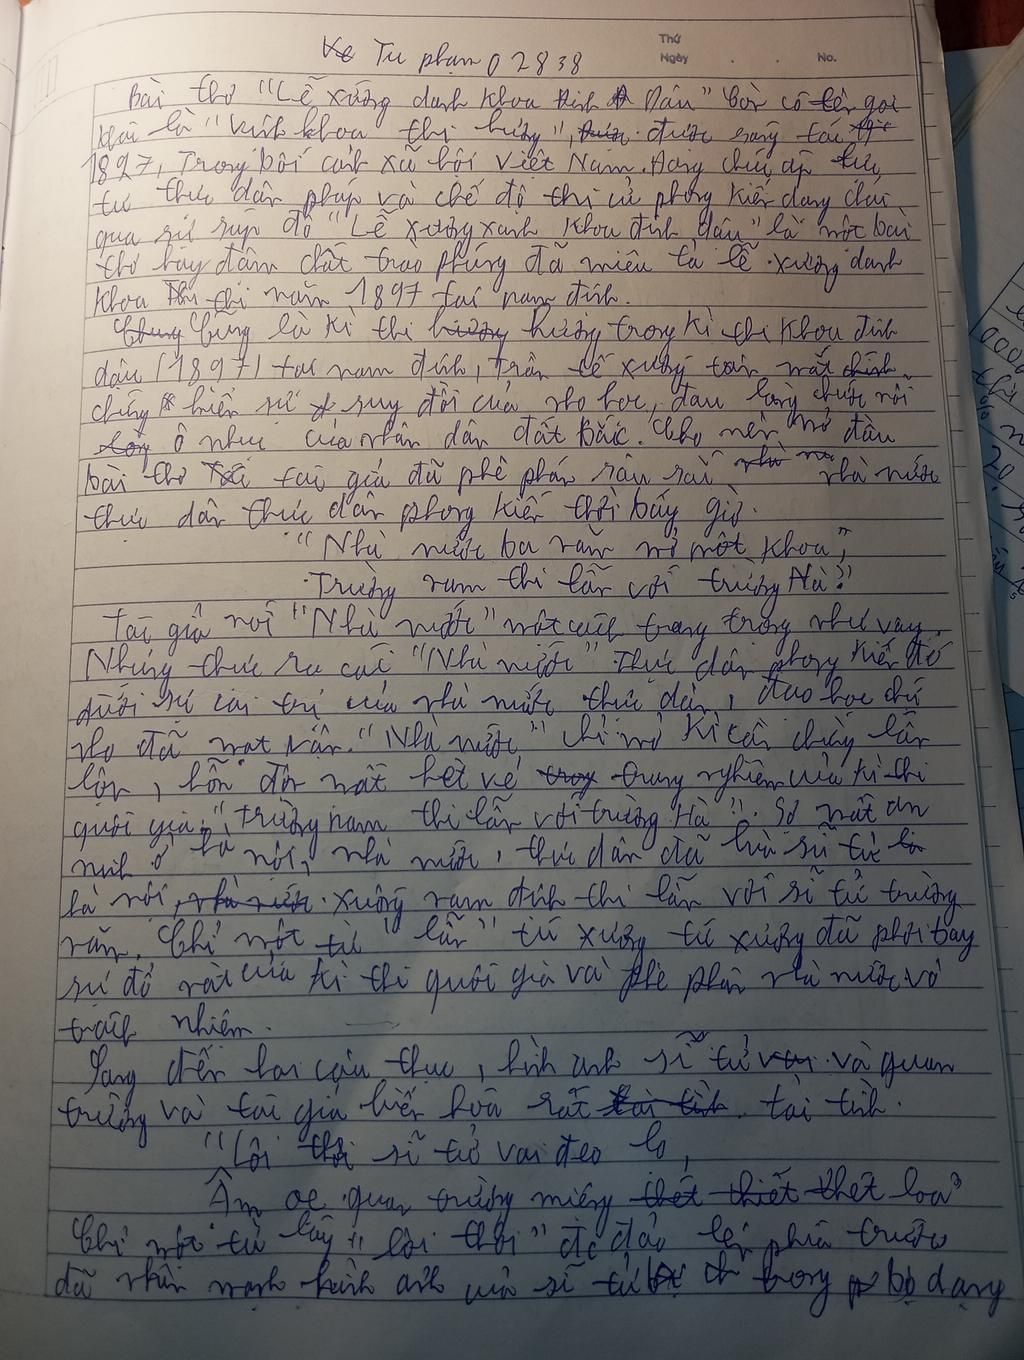 Tu phạm 02838
Thứ
Ngày . . No.
Bài thơ "Lễ xướng danh khoa Đinh Dậu" còn có tên gọi
khác là "Vịnh khoa thi hương", được sáng tác
1897, Trong bối cảnh xã hội Việt Nam đang chịu áp bức
từ thực dân pháp và chế độ thi cử phong kiến đang chải
qua sự sụp đổ "Lễ xướng xanh khoa đinh dậu" là một bài
thơ hay đậm chất trào phúng đã miêu tả lễ xướng danh
khoa thi năm 1897 tại nam định.
Cũng là kì thi hương trong kì thi khoa đinh
dậu (1897) tại nam định, trần tế xương tận mắt chính
chứng kiến sự suy đồi của nho học, đau lòng trước nỗi
ô nhục của nhân dân đất Bắc. Cho nên mở đầu
bài thơ tác giả đã phê phán sâu sắc nhà nước
thực dân thực dân phong kiến thời bấy giờ.
"Nhà nước ba năm mở một khoa,
Trường nam thi lẫn với trường Hà"
Tác giả nói "Nhà nước" một cách trang trọng như vậy.
Nhưng thực ra cái "Nhà nước" Thực dân phong kiến đó
dưới sự cai trị của nhà nước thực dân, đạo học chữ
nho đã mạt vận. "Nhà nước" chỉ mở kì thi chung lẫn
lộn, hỗn độn mất hết vẻ trang nghiêm của kì thi
quốc gia: "trường nam thi lẫn với trường Hà". Sợ mất an
ninh ở hà nội, nhà nước, thực dân đã lùa sĩ tử
hà nội, xuống nam định thi lẫn với sĩ tử trường
năm. Chỉ một từ "lẫn" tú xương tú xương đã phơi bày
sự đổ nát của kì thi quốc gia và phê phán nhà nước vô
trách nhiệm.
Sang đến hai câu thực, hình ảnh sĩ tử và quan
trường và tác giả biến hóa rất tài tình.
"Lôi thôi sĩ tử vai đeo lọ,
Ậm oẹ quan trường miệng thét loa"
Chỉ một từ láy "lôi thôi" đc đảo lên phía trước
đã nhấn mạnh hình ảnh của sĩ tử trong bộ dạng